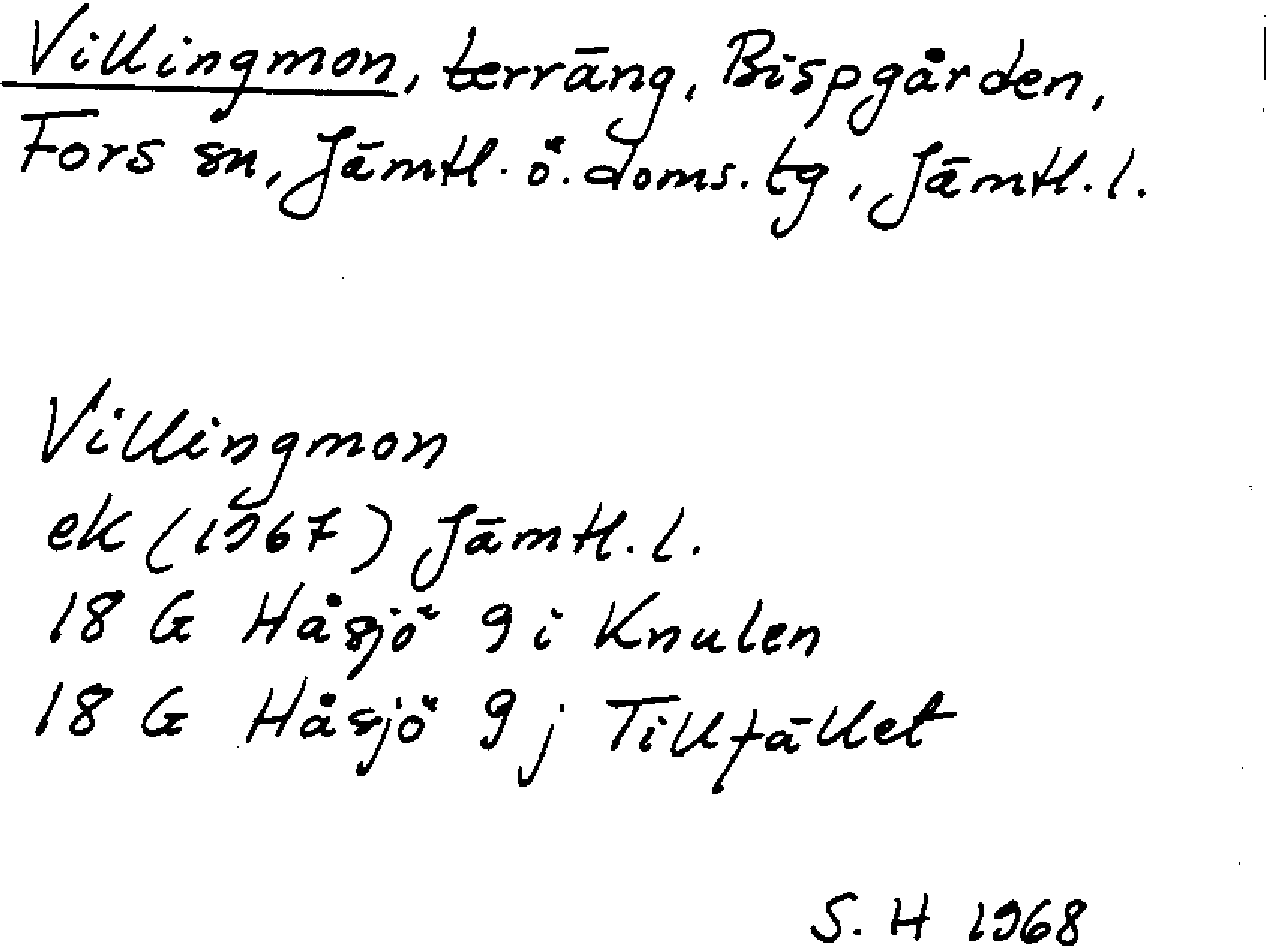 Villingmon, terräng, Bispgården,
Fors sn, Jämtl. ö. doms. tg, Jämtl. l.
Villingmon
ek (1967) Jämtl. l.
18 G Håsjö 9 i Knulen
18 G Håsjö 9 j Tillfället
S. H 1968